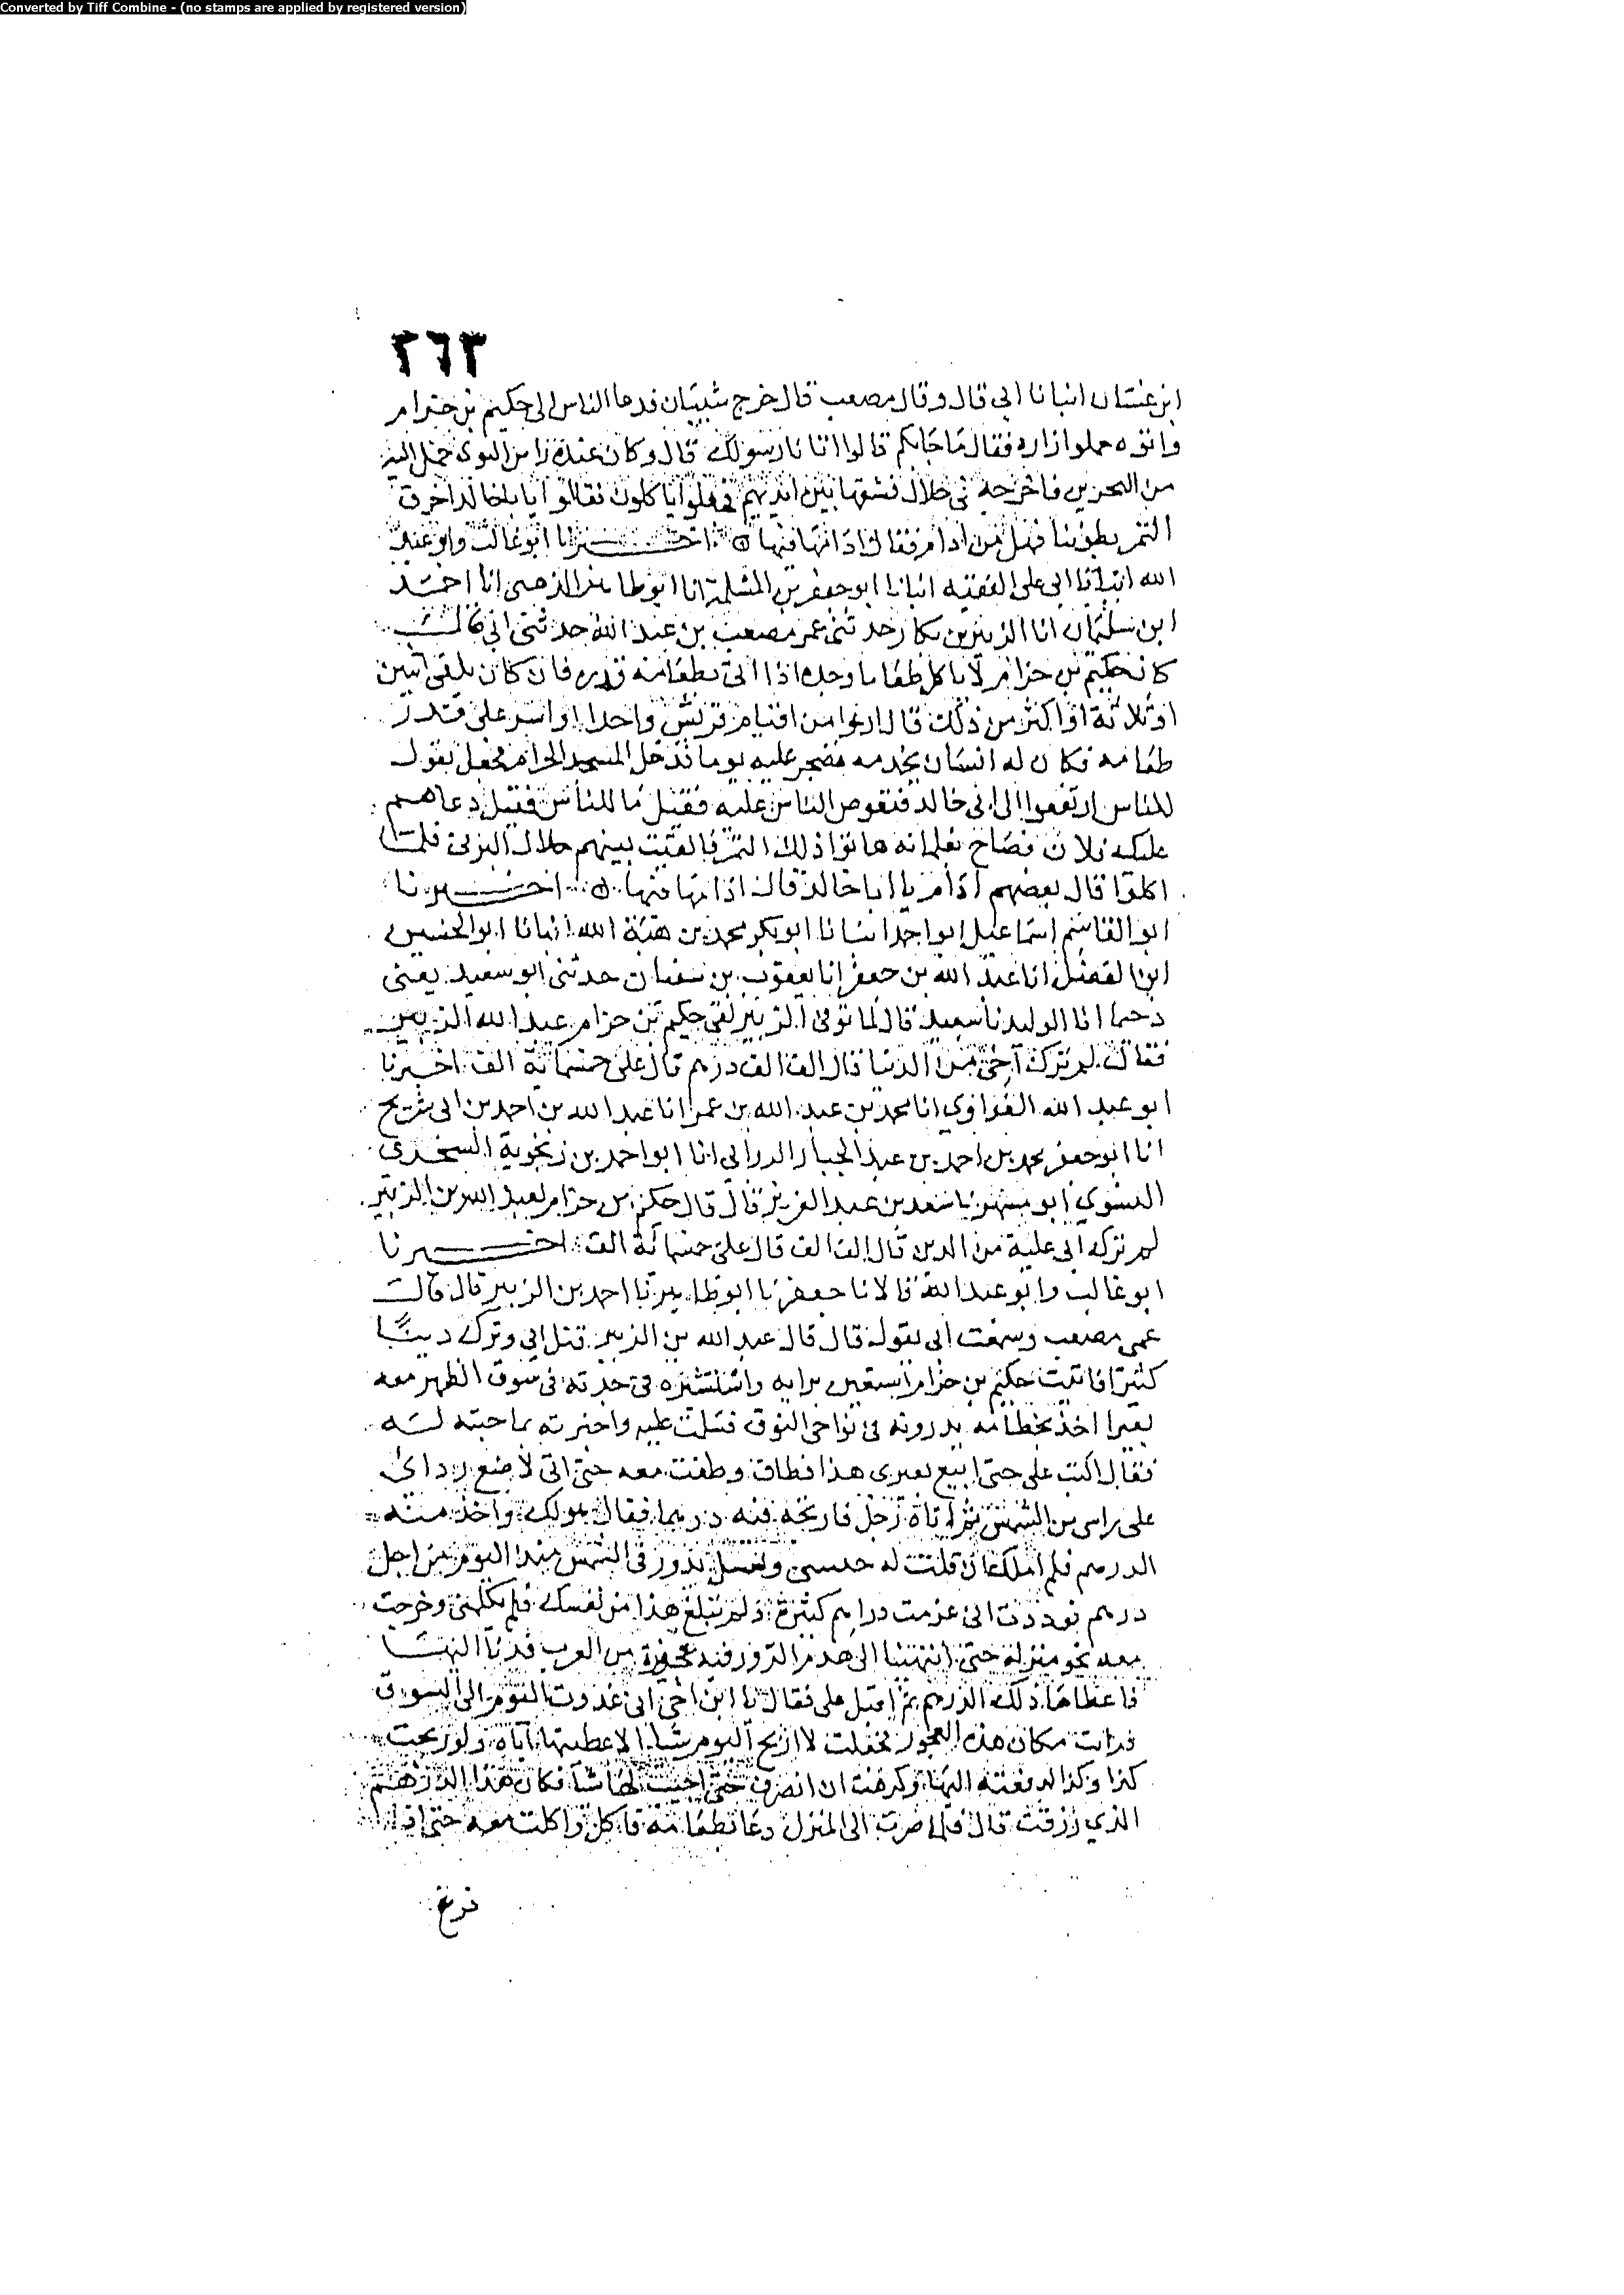 Converted by Tiff Combine - (no stamps are applied by registered version)
٣٦٣
ابن غسان انبانا ابي قال وقال مصعب قال خرج شيبان فدعا الناس الى حكيم بن حزام
واتوه حملوا ازاره فقال ما جابكم قالوا اتانا رسولك قال وكان عنده زا من النوى حمل اليه
من البحرين فاخرجه في جلال فشقها بين ايديهم فجعلوا ياكلون فقالوا ايا با خالد احرق
التمر بطوننا فهل من ادام فقال اذا انها فيها اخبرنا ابو غالب وابو عبد
الله انبانا ابي على الفقيه انبانا ابو جعفر بن المسلمة انا ابو طاهر الذهبي انا احمد
ابن سليمان انا الزبير بن بكار حدثني عمر مصعب بن عبد الله حدثني ابي قالت
كان حكيم بن حزام لا ياكل طعاما وحده اذا اتي بطعامه قدره فان كان يلقى اثنين
او ثلاثة او اكثر من ذلك قال ادعوا من افتيام قريش واحدا او اثنين على قدر
طعامه فكان له انسان يخدمه فضجر عليه يوما فدخل المسجد الحرام فجعل يقول
للناس ارتفعوا الى ابي خالد فتقوض الناس عليه فقيل ما للناس فقيل دعاهم
عليك فلان فصاح بغلمانه هاتوا ذلك التمر فالقيت بينهم جلال البرني فلما
اكلوا قال بعضهم ادام يا ابا خالد قال اذا انها فيها اخبرنا
ابو القاسم اسماعيل ابو احد انبانا ابو بكر محمد بن هبة الله انبانا ابو الحسين
ابن الفضل انا عبد الله بن جعفر انا يعقوب بن سفيان حدثني ابو سعيد يعني
دحما انا الوليد نا سعيد قال لما توفي الزبير لقي حكيم بن حزام عبد الله الزبير
فقال لم ترك اخي من الدنيا قال الف الف درهم قال على خمسمائة الف اخبرنا
ابو عبد الله الفراوي انا محمد بن عبد الله بن عمر انا عبد الله بن احمد بن ابي شريح
انا ابو جعفر محمد بن احمد بن عبد الجبار الدراني انا ابو احمد بن زنجوية السخدي
النسوي ابو مسهر نا سعد بن عبد العزيز قال قال حكيم بن حزام لعبد الله بن الزبير
لم ترك ابي علية من الدين قال الف الف قال على خمسمائة الف اخبرنا
ابو غالب وابو عبد الله قالا نا جعفر نا ابو طاهر نا احمد بن الزبير قال قالت
عمي مصعب وسمعت ابي يقول قال قال عبد الله بن الزبير قتل ابي وترك دينا
كثيرا فاتيت حكيم بن حزام استعين برايه واستشيره فوجدته في سوق الظهر معه
بعيرا اخذ بخطامه يدرونه في نواحي السوق فسلمت عليه واخبرته بما جيته له
فقال اكتب على حتى ابيع بعيري هذا فطاف وطفت معه حتى اني لاضع ردائي
على راسي من الشمس ثم اتاه رجل فاربحه فيه درهما فقال هو لك واخذ منه
الدرهم فلم املك ان قلت له حبستني ونفسك ندور في الشمس منذ اليوم من اجل
درهم فوددت اني غرمت دراهم كثيرة ولم تبلغ هذا من نفسك فلم يكلمني وخرجت
معه نحو منزله حتى انتهينا الى هدم الزور فيه عجوزة من العرب فدنا اليها
فاعطاها ذلك الدرهم ثم اقبل على فقال يا ابن اخي اني غدوت اليوم الى السوق
فرايت مكان هذه العجوز فجعلت لا اربح اليوم شيا الا اعطيتها اياه ولو ربحت
كذا وكذا لدفعته اليها وكرهت ان انصرف حتى اجيب لها شيا فكان هذا الدرهم
الذي رزقت قال فلما صرت الى المنزل دعا بطعامه فاكل واكلت معه حتى اذا
فرغ